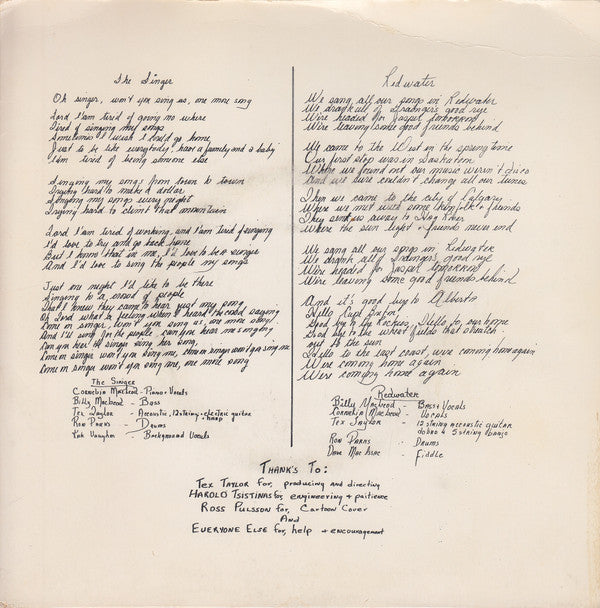 The Singer
Oh singer, won't you sing us, one more song
Lord I am tired of going no where
Tired of singing my songs
Sometimes I wish I could go home
Just to be like everybody, have a family and a baby
I am tired of being someone else
Singing my songs from town to town
Trying hard to make a dollar
Singing my songs every night
Trying hard to climb that mountain
Lord I am tired of working, and I am tired of
I'd love to try and go back home
But I know that in me, I'd love to be a singer
And I'd love to sing the people my songs
Just one night I'd like to be there
Singing to a crowd of people
That I knew they came to hear just my song
Oh Lord what a feeling when I heard the crowd saying
Come on singer, won't you sing us, one more song
And I'll sing for the people can you hear me singing
Can you hear the singer sing her song
Come on singer won't you sing me, come on singer won't you sing me
Come on singer won't you sing me, one more song
The Singer
Cornelia Macleod - Piano + Vocals
Billy Macleod - Bass
Tex Taylor - Acoustic, 12 string + electric guitar
+ harp
Ron Parks - Drums
Vaughn - Background Vocals
Redwater
We sang all our songs in Redwater
We drank all of Seadinger's good rye
We're headed for Jasper tomorrow
We're leaving some good friends behind
We came to the West in the springtime
Our first stop was in Saskatoon
Where we found out our music weren't disco
And we sure couldn't change all our tunes
Then we came to the city of Calgary
Where we met with some folk + friends
They send us away to Hog River
Where the sun light + friends never end
We sang all our songs in Redwater
We drank all of Seadinger's good rye
We're headed for Jasper tomorrow
We're leaving some good friends behind
And it's good bye to Alberta
Hello Cape Breton
Good bye to the Rockies, Hello to our home
Good bye to the wheat fields that stretch
out to the sun
Hello to the east coast, we're coming home again
We're coming home again
We're coming home again
Redwater
Billy Macleod - Bass + Vocals
Cornelia Macleod - Vocals
Tex Taylor - 12 string acoustic guitar
dobro & 5 string banjo
Ron Parks - Drums
Dave MacIsaac - Fiddle
THANK'S TO:
TEX TAYLOR for, producing and directing
HAROLD TSISTINAS for, engineering + patience
ROSS PULSSON for, Cartoon Cover
And
EVERYONE ELSE for, help + encouragement